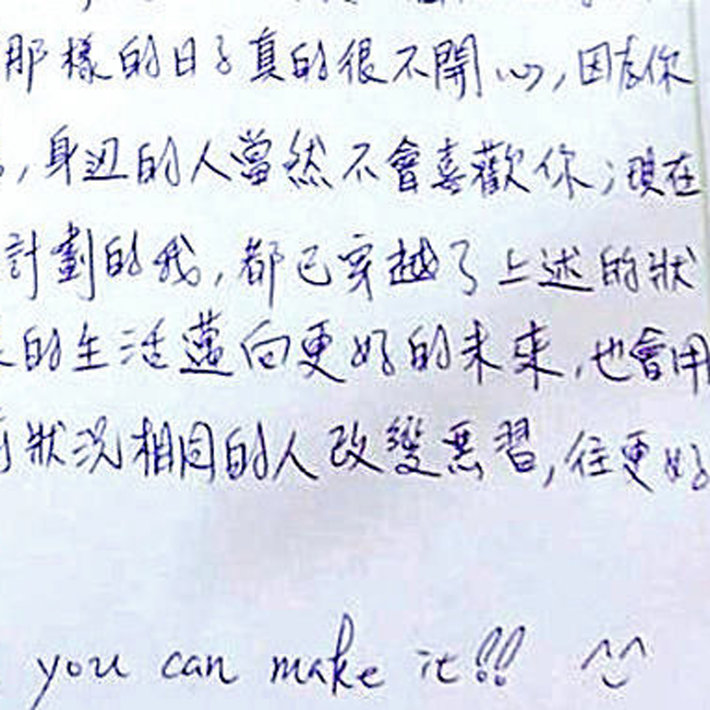 那樣的日子真的很不開心,因為你
,身边的人當然不會喜歡你;現在
計劃的我,都已穿越了上述的狀
的生活邁向更好的未來,也會用
狀况相同的人改變惡習,往更好
you can make it!! ^^